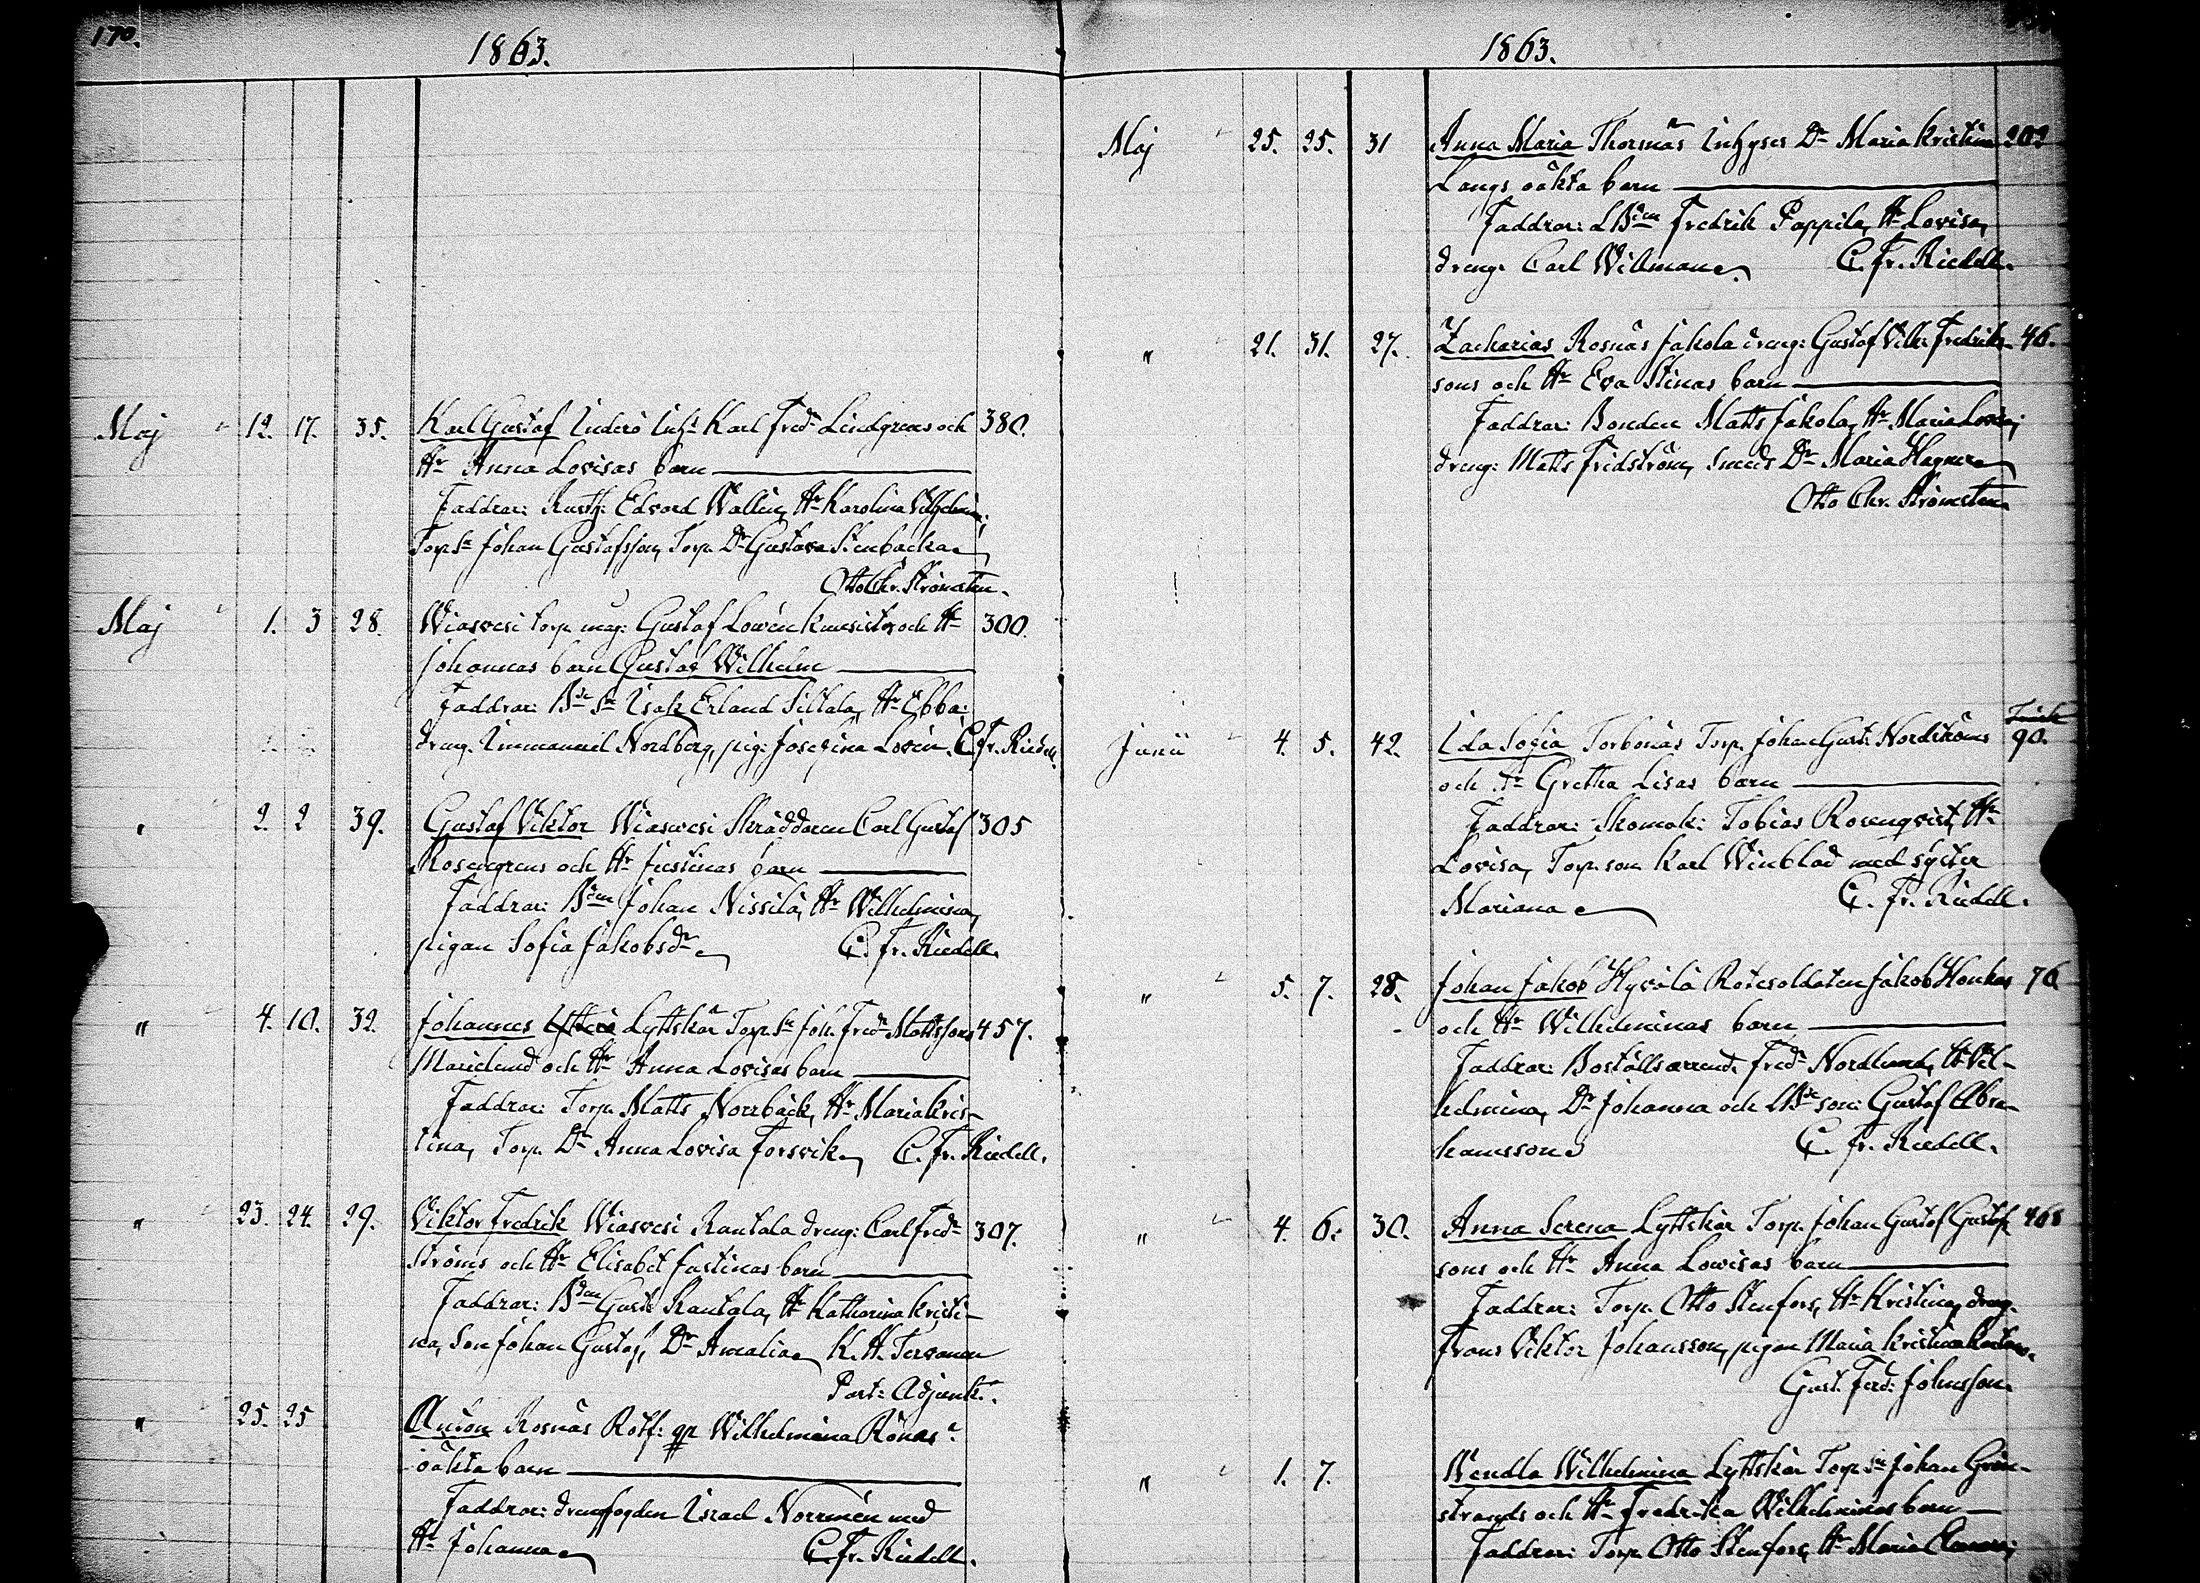 170.
1863.
Maj 12. 17. 35. Karl Gustaf Inderö Inh: Karl Fred: Lindgrens och 380.
Hr Anna Lovisas barn
Faddrar: Rusth: Edvard Wallin, Hr Karolina Vilhelmina;
Torp. Sn Johan Gustafsson, Torp. Dr Gustava Stenbacka
Otto Chr. Strömsten.
Maj 1. 3 28. Wiasvesi torp. mag: Gustaf Lovén och Hr 300.
Johannas barn Gustaf Wilhelm
Faddrar: Bde Sn Isak Erland Siltala, Hr Ebba;
dreng. Immanuel Nordberg, pig: Josefina Lovén. C. Fr. Riedell.
2. 2 39. Gustaf Viktor Wiasvesi Skräddaren Carl Gustaf 305
Rosengrens och Hr Justinas barn
Faddrar: Bden Johan Nissilä, Hr Wilhelmina,
pigan Sofia Jakobsdr C. Fr. Riedell.
" 4. 10. 32. Johannes Lyttskär Torp. Sn Joh. Fredr Mattssons 457.
Marielund och Hr Anna Lovisas barn
Faddrar: Torp. Matts Norrbäck, Hr Maria Kris-
tina, Torp. Dr Anna Lovisa Forsvik C. Fr. Riedell.
" 23. 24. 29. Viktor Fredrik Wiasvesi Rantala dreng: Carl Fredr 307.
Ströms och Hr Elisabet Justinas barn
Faddrar: Bden Gust: Rantala, Hr Katharina Kristi-
na, Son Johan Gustaf, Dr Amalia K. H. Tervonen
Past: Adjunkt.
" 25. 25 Anton Rosnäs Rotf: qp Wilhelmina Rönns
oäkta barn
Faddrar: drengfogden Israel Norrmén med
Hr Johanna C. Fr. Riedell.
1863.
Maj 25. 25. 31 Anna Maria Thorsnäs Inhyses Dr Maria Kristina 202
Langs oäkta barn
Faddrar: LBden Fredrik Pappila, Hr Lovisa,
dreng. Carl Willman C. Fr. Riedell.
" 21. 31. 27. Zacharias Rosnäs Jakola dreng: Gustaf Vilh: Fredriks- 46.
sons och Hr Eva Stinas barn
Faddrar: Bonden Matts Jakola, Hr Maria Lovisa;
dreng: Matts Fridström, Smeds Dr Maria Hagner
Otto Chr. Strömsten.
Junii 4. 5. 42. Ida Sofia Torbonäs Torp. Johan Gust: Nordströms 90.
och Hr Gretha Lisas barn
Faddrar: Skomak: Tobias Rosenqvist, Hr
Lovisa, Torp. son Karl Winblad med syster
Mariana C. Fr. Riedell.
" 5. 7. 28. Johan Jakob Hyvilä Rotesoldaten Jakob Honkas 76
och Hr Wilhelminas barn
Faddrar: Boställsarrend. Fredr Nordlund, Hr Vil-
helmina, Dr Johanna och LBde son: Gustaf Abra-
hamsson C. Fr. Riedell.
" 4. 6. 30. Anna Serena Lyttskär Torp. Johan Gustaf Gustafs- 468
sons och Hr Anna Lovisas barn
Faddrar: Torp. Otto Stenfors, Hr Kristina, dreng.
Frans Viktor Johansson, pigan Maria Kristina
Gust. Ferd: Johnsson.
" 1. 7. Wendla Wilhelmina Lyttskär Torp. Sn Johan Grön-
strands och Hr Fredrika Wilhelminas barn
Faddrar: Torp. Otto Stenfors, Hr Maria